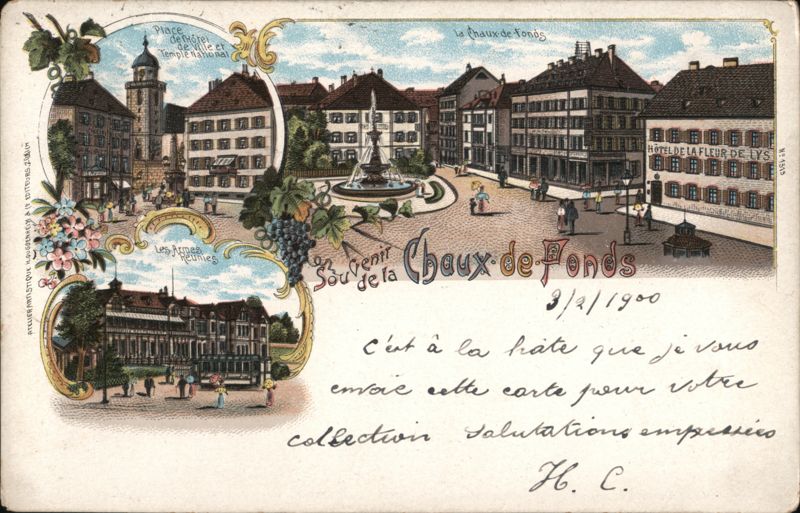 Place
de l'Hôtel
de Ville et
Temple National
La Chaux-de-Fonds
HÔTEL DE LA FLEUR-DE-LYS
Les Armes
Réunies
Un
Souvenir
de la
Chaux-de-Fonds
3/2/1900
C'est à la hâte que je vous
envoie cette carte pour votre
collection Salutations empressées
H. C.